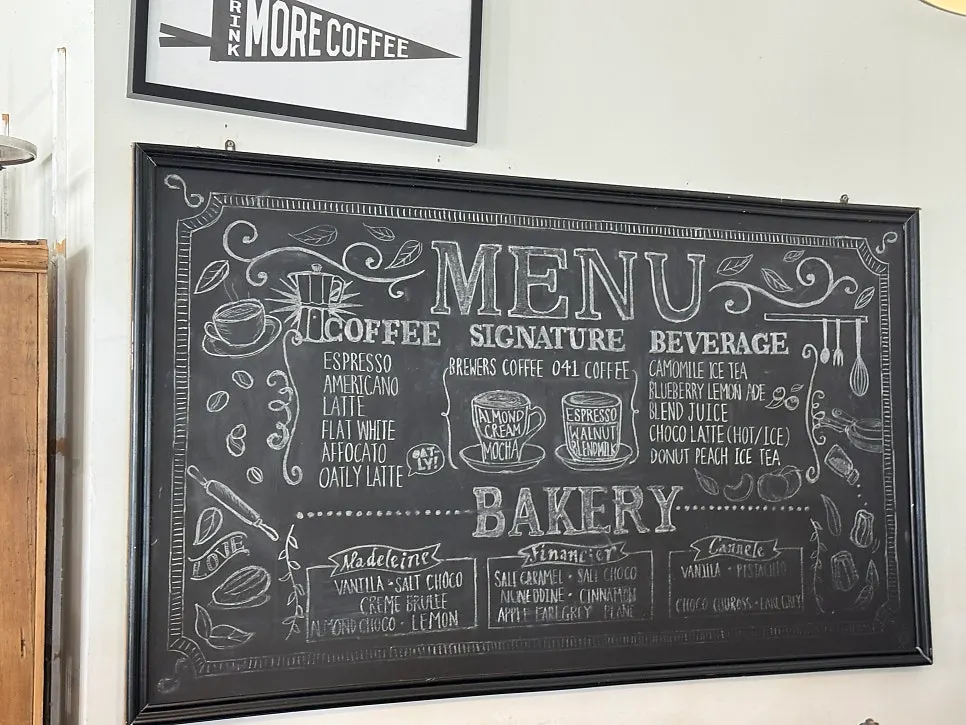 DRINK
MORE COFFEE
MENU
COFFEE
ESPRESSO
AMERICANO
LATTE
FLAT WHITE
AFFOCATO
OATLY LATTE
OAT-
LY!
SIGNATURE
BREWERS COFFEE 041 COFFEE
ALMOND
CREAM
MOCHA
ESPRESSO
WALNUT
BLENDMILK
BEVERAGE
CAMOMILE ICE TEA
BLUEBERRY LEMON ADE
BLEND JUICE
CHOCO LATTE (HOT/ICE)
DONUT PEACH ICE TEA
BAKERY
LOVE
Madeleine
VANILLA • SALT CHOCO
CREME BRULEE
ALMOND CHOCO • LEMON
Financier
SALT CARAMEL • SALT CHOCO
CINNAMON
APPLE EARLGREY PLANE
Cannele
VANILLA • PISTACHIO
CHOCO CHUROSS • EARLGREY